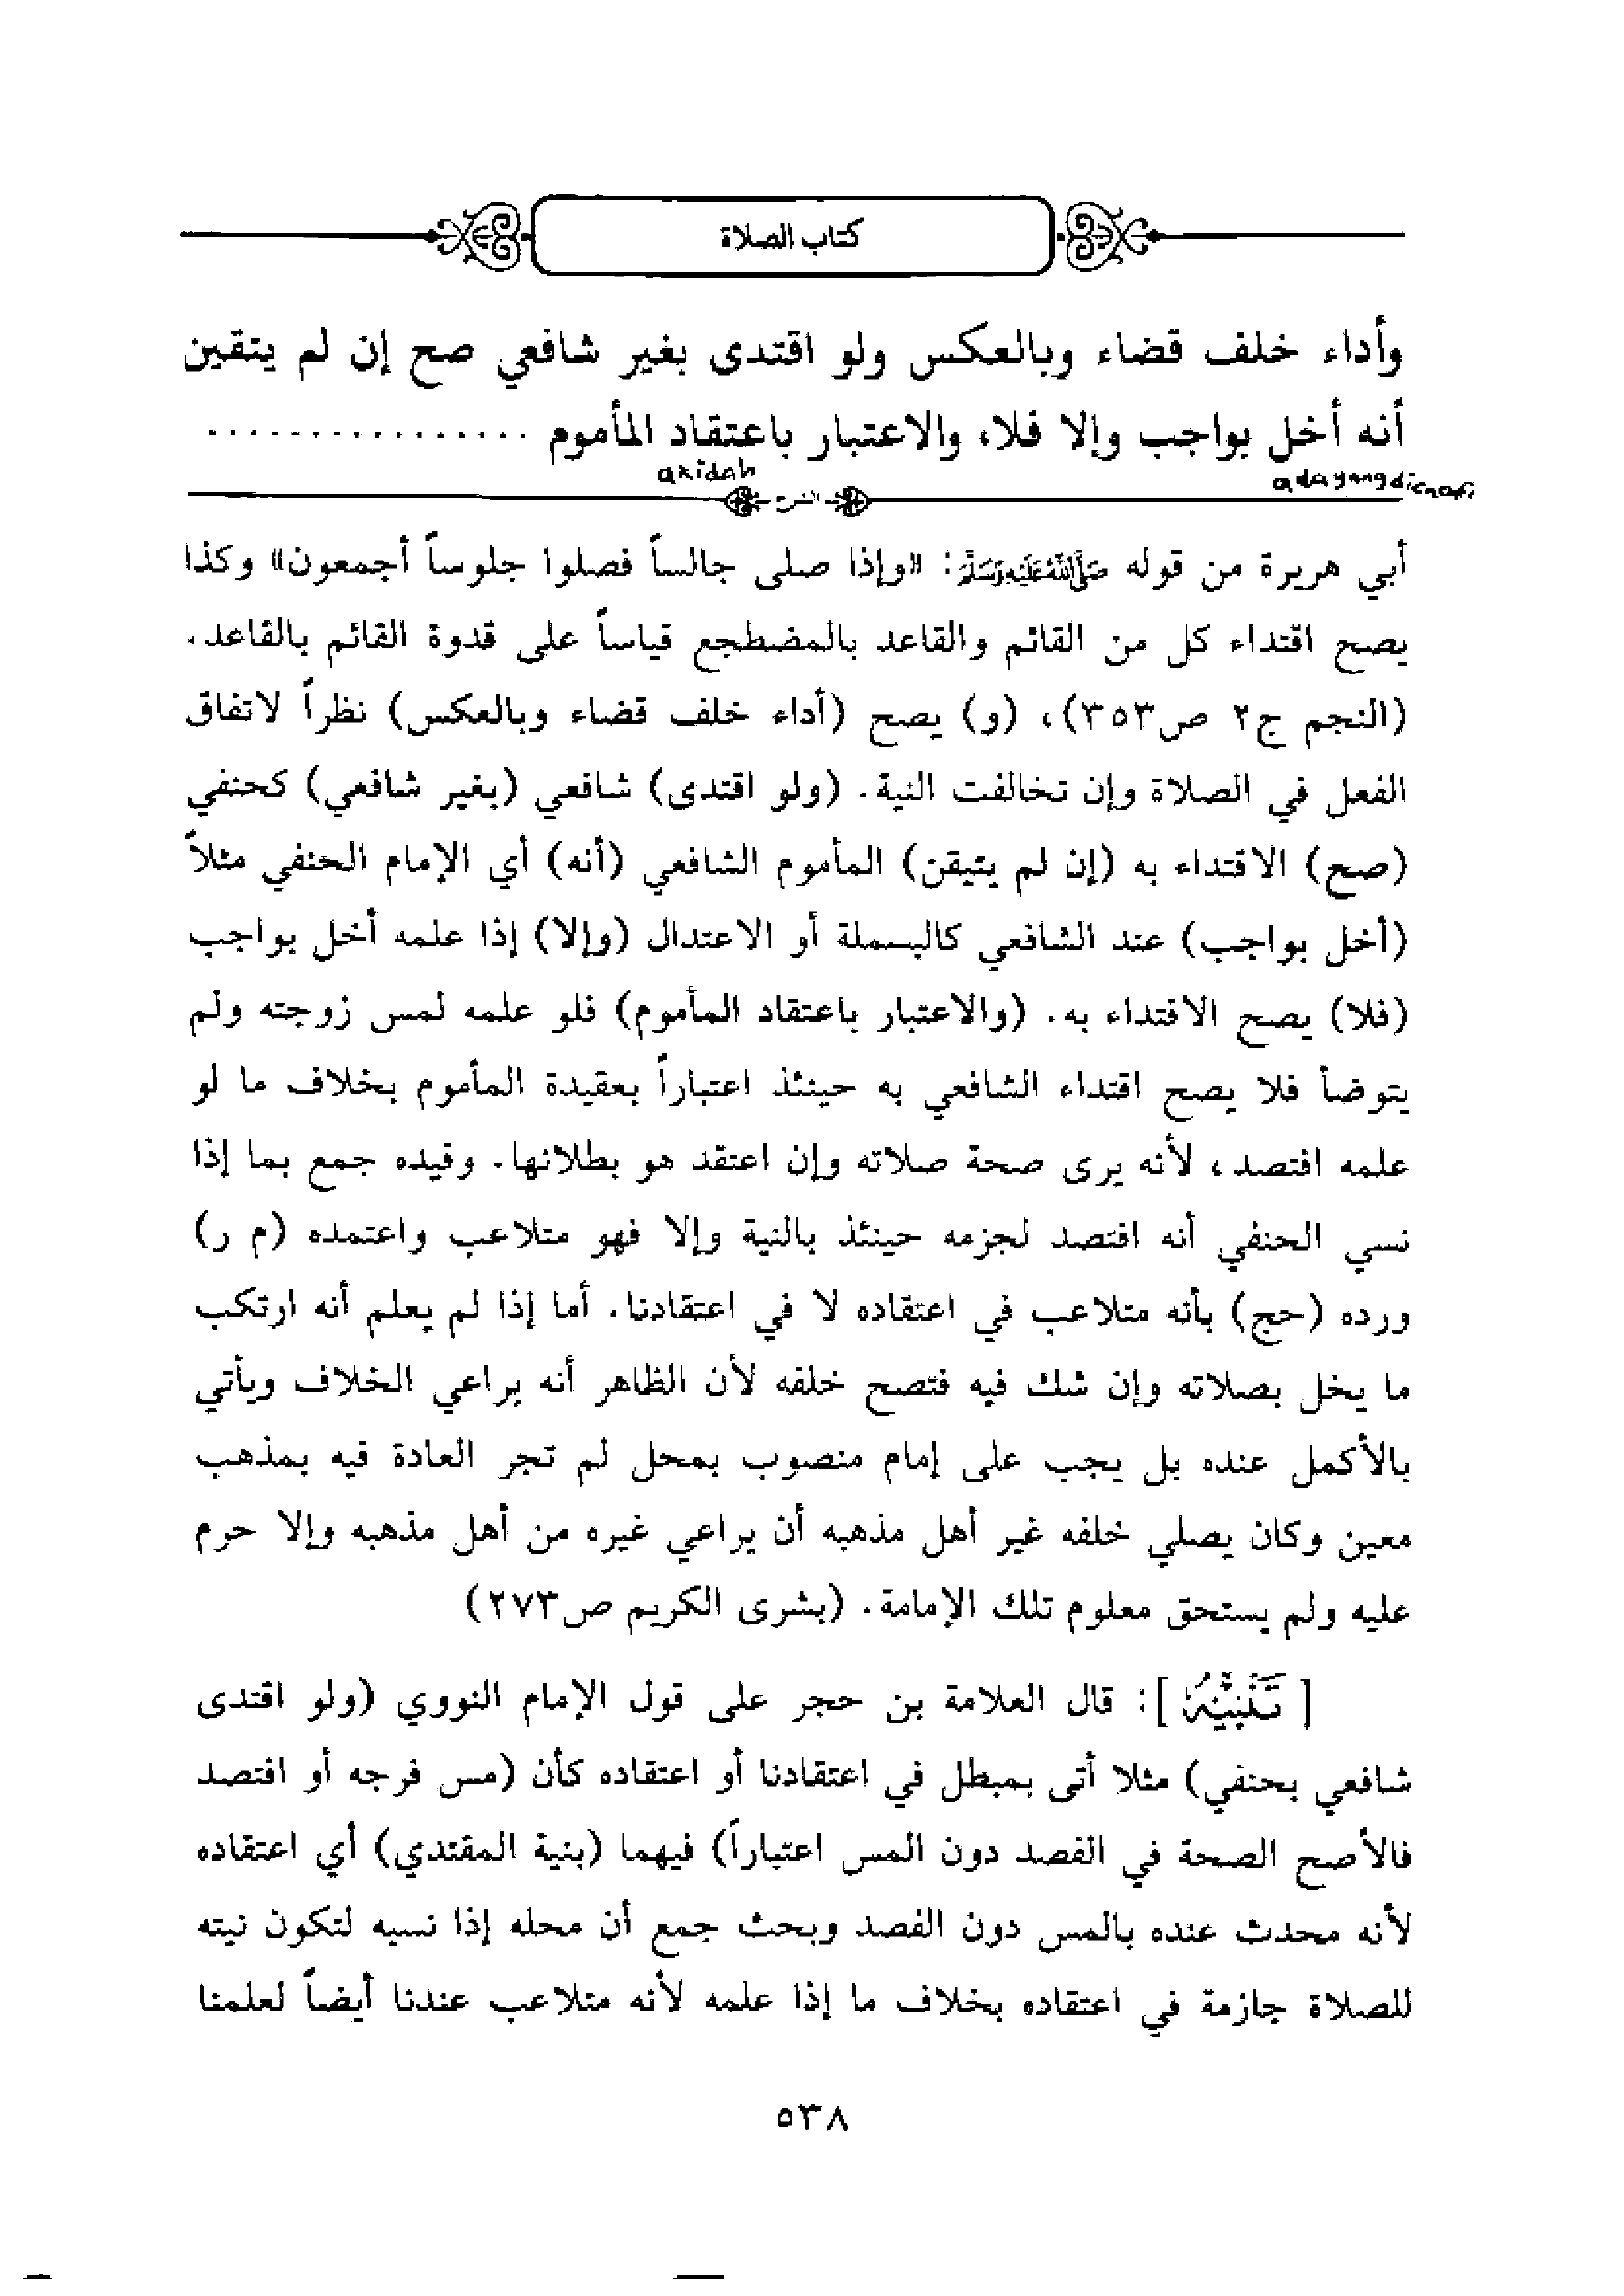 كتاب الصلاة
وأداء خلف قضاء وبالعكس ولو اقتدى بغير شافعي صح إن لم يتقين
أنه أخل بواجب وإلا فلا، والاعتبار باعتقاد المأموم ................
akidah
الشرح
أبي هريرة من قوله ﷺ: «وإذا صلى جالساً فصلوا جلوساً أجمعون» وكذا
يصح اقتداء كل من القائم والقاعد بالمضطجع قياساً على قدوة القائم بالقاعد.
(النجم ج٢ ص٣٥٣)، (و) يصح (أداء خلف قضاء وبالعكس) نظراً لاتفاق
الفعل في الصلاة وإن تخالفت النية. (ولو اقتدى) شافعي (بغير شافعي) كحنفي
(صح) الاقتداء به (إن لم يتيقن) المأموم الشافعي (أنه) أي الإمام الحنفي مثلاً
(أخل بواجب) عند الشافعي كالبسملة أو الاعتدال (وإلا) إذا علمه أخل بواجب
(فلا) يصح الاقتداء به. (والاعتبار باعتقاد المأموم) فلو علمه لمس زوجته ولم
يتوضأ فلا يصح اقتداء الشافعي به حينئذ اعتباراً بعقيدة المأموم بخلاف ما لو
علمه افتصد، لأنه يرى صحة صلاته وإن اعتقد هو بطلانها. وقيده جمع بما إذا
نسي الحنفي أنه افتصد لجزمه حينئذ بالنية وإلا فهو متلاعب واعتمده (م ر)
ورده (حج) بأنه متلاعب في اعتقاده لا في اعتقادنا. أما إذا لم يعلم أنه ارتكب
ما يخل بصلاته وإن شك فيه فتصح خلفه لأن الظاهر أنه يراعي الخلاف ويأتي
بالأكمل عنده بل يجب على إمام منصوب بمحل لم تجر العادة فيه بمذهب
معين وكان يصلي خلفه غير أهل مذهبه أن يراعي غيره من أهل مذهبه وإلا حرم
عليه ولم يستحق معلوم تلك الإمامة. (بشرى الكريم ص٢٧٣)
[تَنْبِيْهٌ]: قال العلامة بن حجر على قول الإمام النووي (ولو اقتدى
شافعي بحنفي) مثلا أتى بمبطل في اعتقادنا أو اعتقاده كأن (مس فرجه أو افتصد
فالأصح الصحة في الفصد دون المس اعتباراً) فيهما (بنية المقتدي) أي اعتقاده
لأنه محدث عنده بالمس دون الفصد وبحث جمع أن محله إذا نسيه لتكون نيته
للصلاة جازمة في اعتقاده بخلاف ما إذا علمه لأنه متلاعب عندنا أيضاً لعلمنا
٥٣٨